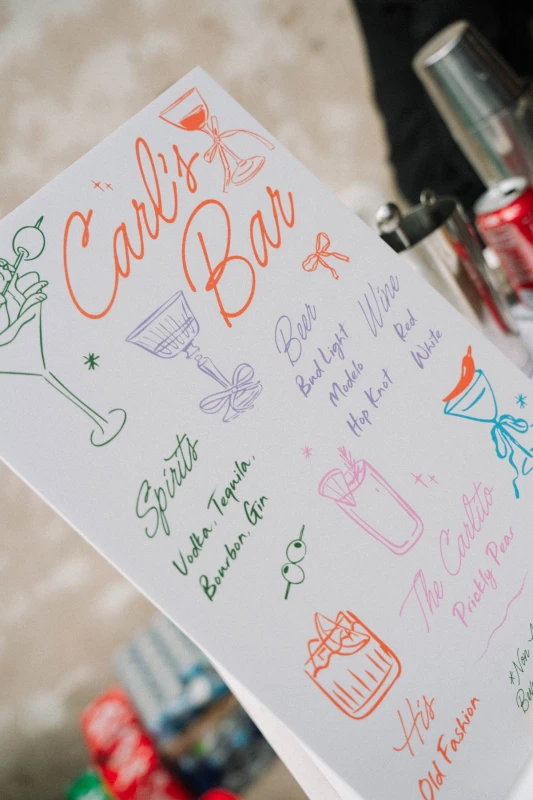 Carl's
Bar
Beer
Bud Light
Modelo
Hop Knot
Wine
Red
White
Spirits
Vodka, Tequila,
Bourbon, Gin
The Carlito
Prickly Pear
His
Old Fashion
*Non